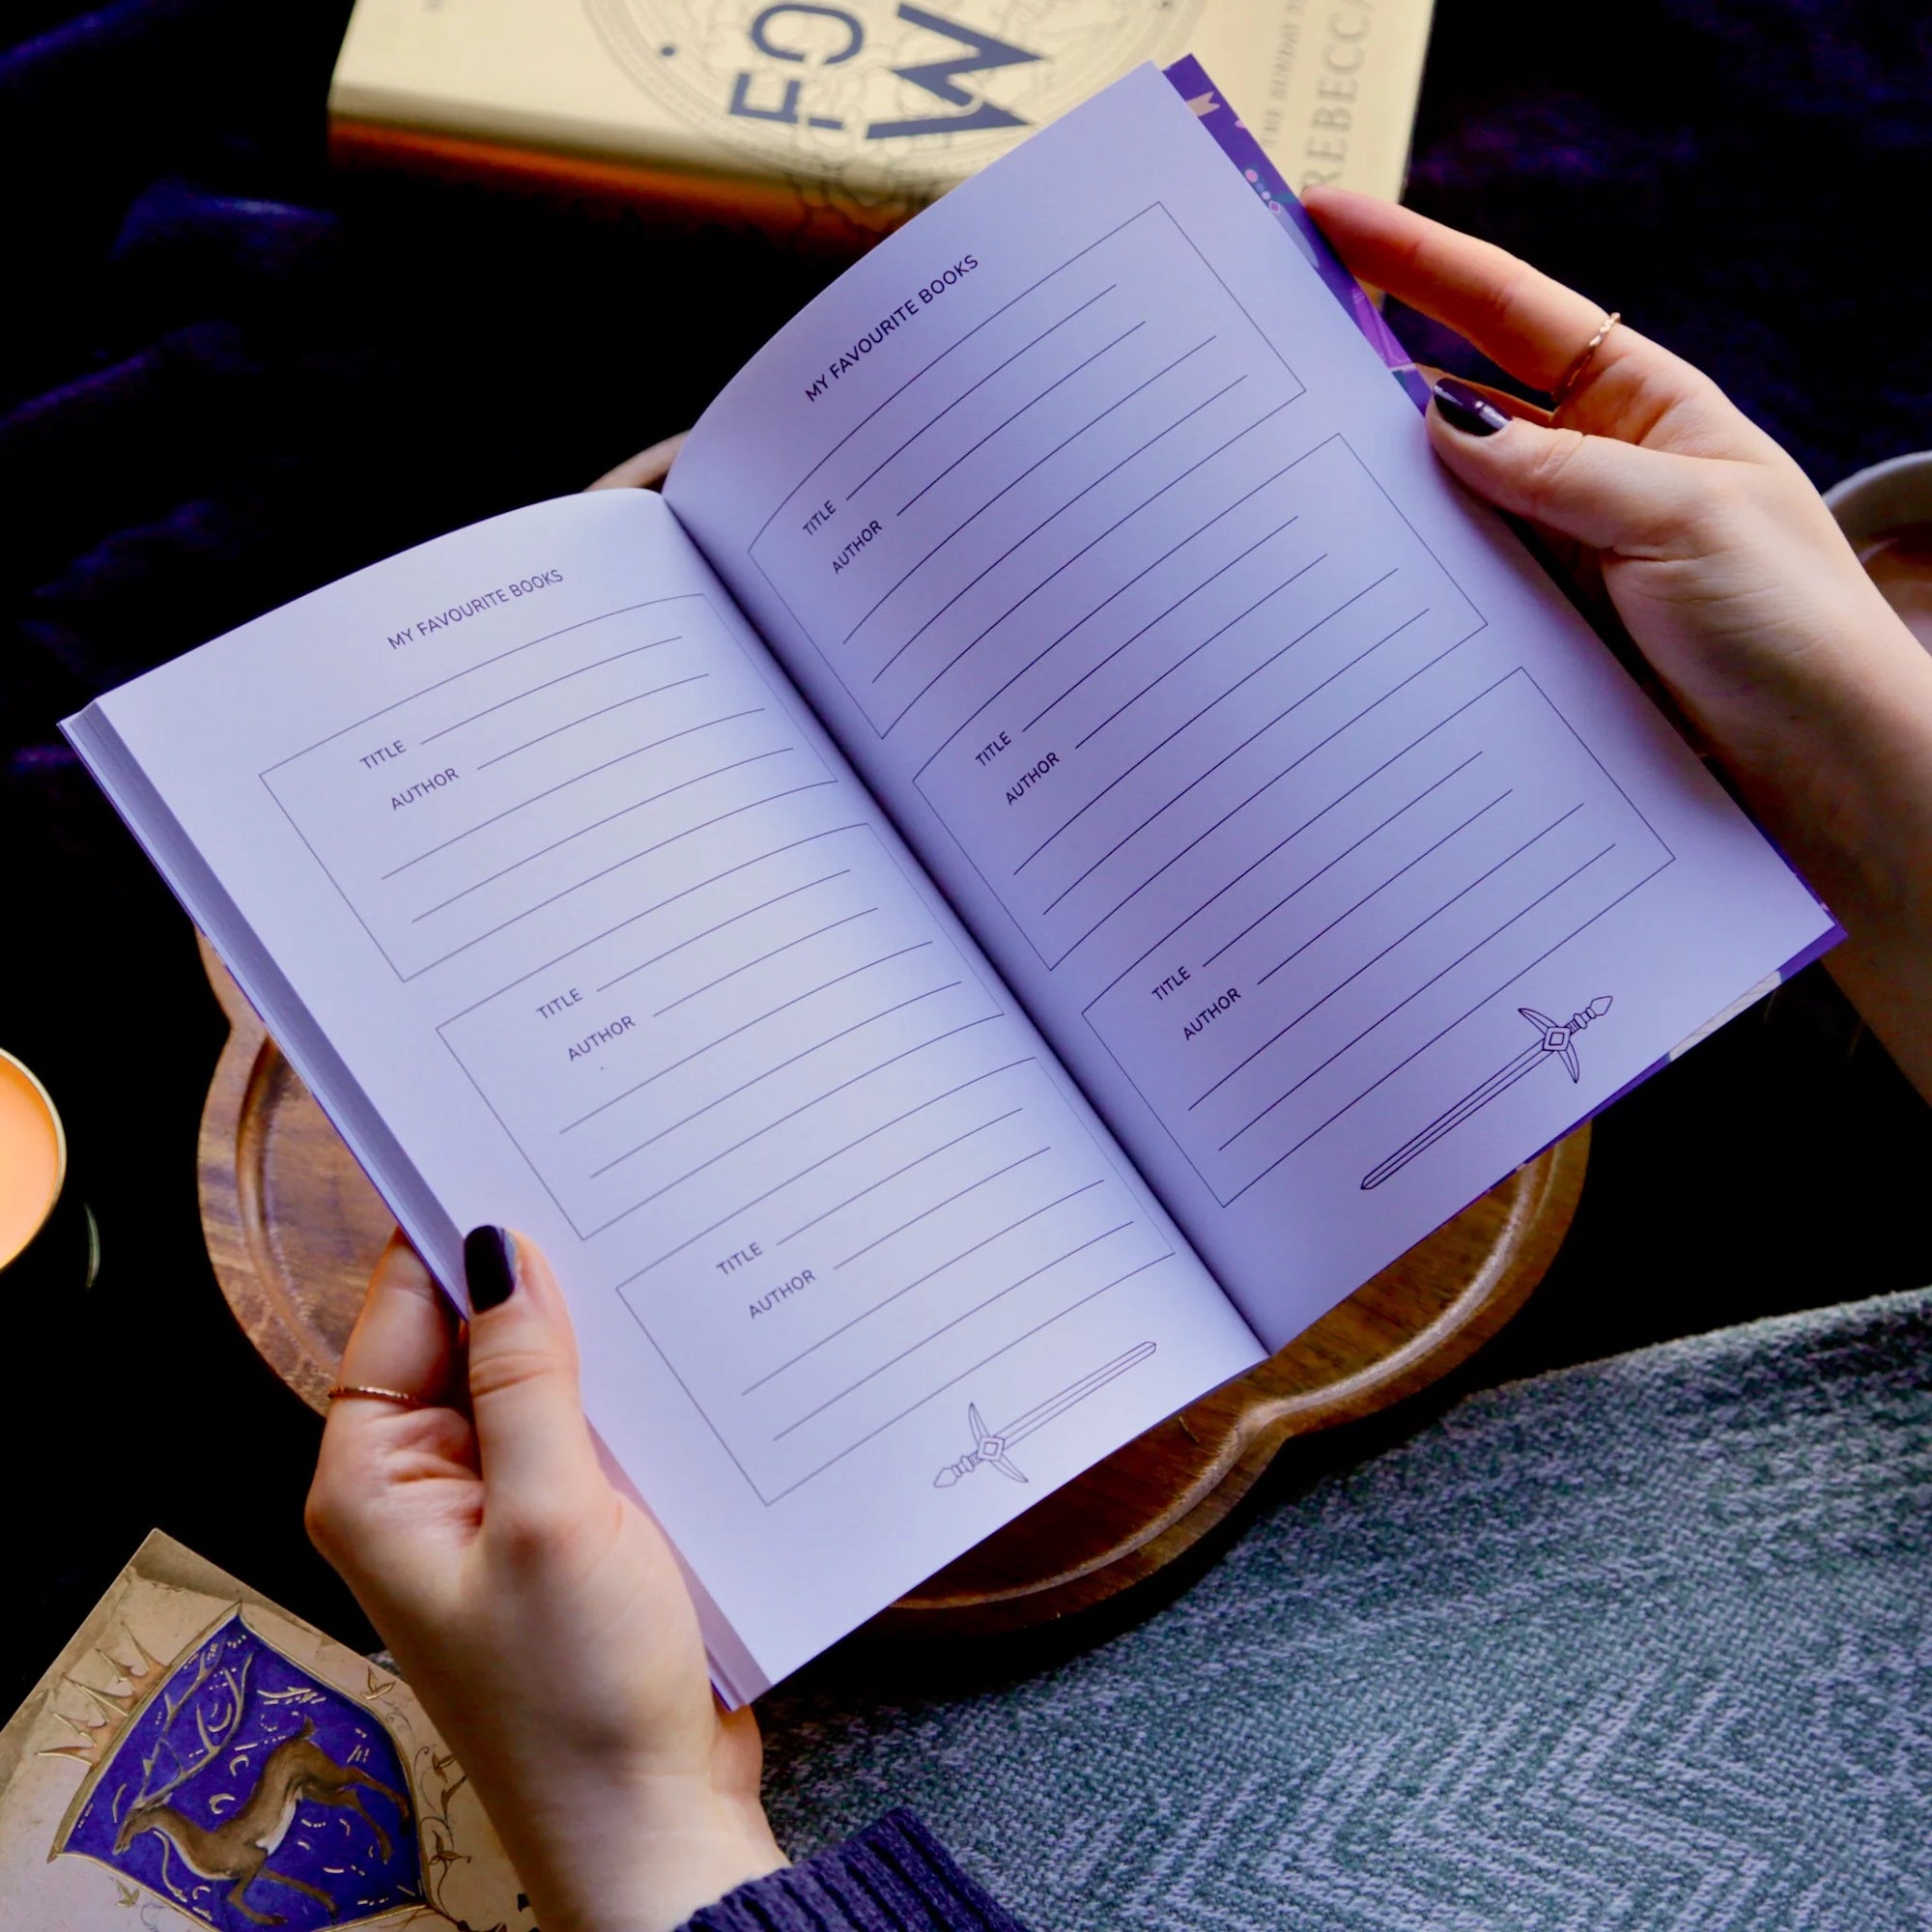 MY FAVOURITE BOOKS
TITLE
AUTHOR
TITLE
AUTHOR
TITLE
AUTHOR
MY FAVOURITE BOOKS
TITLE
AUTHOR
TITLE
AUTHOR
TITLE
AUTHOR
THE SUNDAY
REBECCA